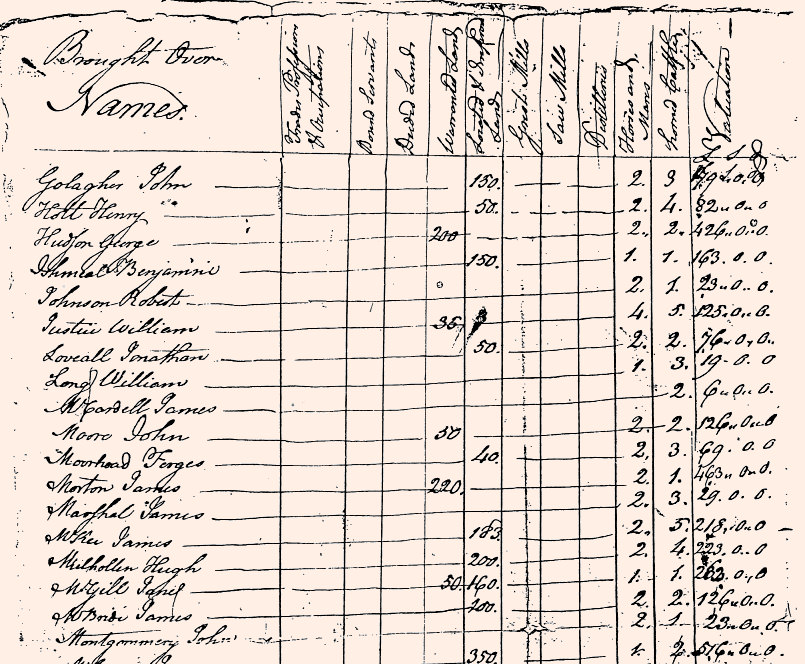 Brought Over
Names. Trades Professions & Occupations Bound Servants Deeded Land Warranted Land Located & Improved Land Grist Mills Saw Mills Distilleries Horses and Mares Horned Cattle Valuation
£ S D
Golagher John 150. 2. 3 79.0.0
Hott Henry 50. 2. 4. 82.0.0
Hudson George 200 2. 2. 426.0.0.
Ishmeal Benjamine 150. 1. 1. 163.0.0
Johnson Robert 2. 1. 23.0.0.
Justice William 35 4. 5. 125.0.0.
Loveall Jonathan 50. 2. 2. 76.0.0.
Long William 1. 3. 19.0.0
McCardell James 2. 6.0.0.
Moore John 50 2. 2. 126.0.0
Moorhead Forges 40. 2. 3. 69.0.0
Morton James 220. 2. 1. 463.0.0.
Marshal James 2. 3. 29.0.0.
McKee James 183. 2. 5. 218.0.0
Milhollin Hugh 200. 2. 4. 223.0.0
McGill 50. 160. 1. 1. 0.0
McBride James 200. 2. 2. 126.0.0.
Montgommery John 2. 1. 23.0.0.
350. 1. 2. 516.0.0.